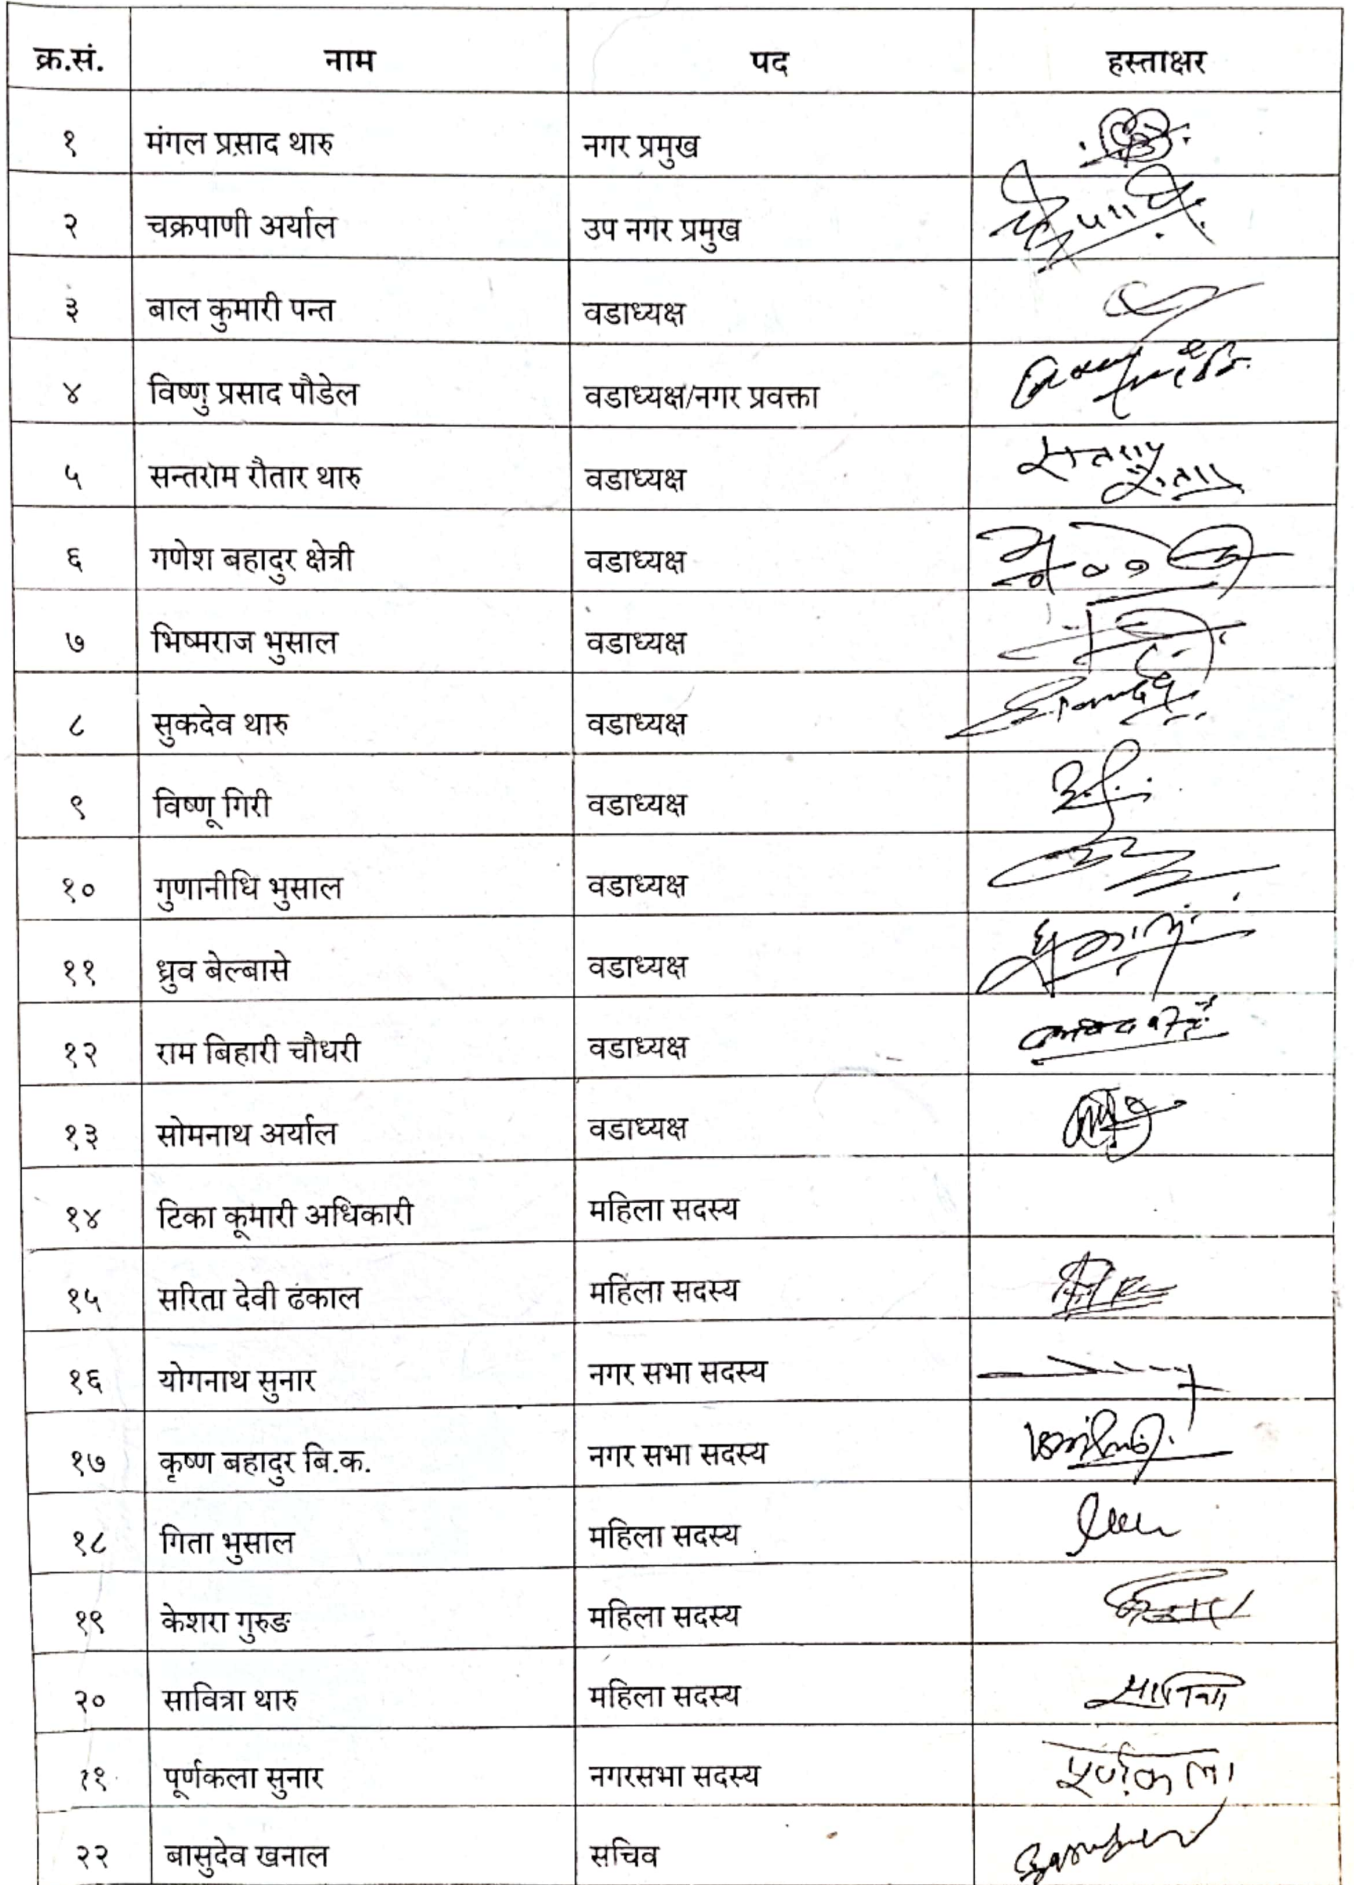 क्र.सं. नाम पद हस्ताक्षर
१ मंगल प्रसाद थारु नगर प्रमुख
२ चक्रपाणी अर्याल उप नगर प्रमुख
३ बाल कुमारी पन्त वडाध्यक्ष
४ विष्णु प्रसाद पौडेल वडाध्यक्ष/नगर प्रवक्ता
५ सन्तराम रौतार थारु वडाध्यक्ष
६ गणेश बहादुर क्षेत्री वडाध्यक्ष
७ भिष्मराज भुसाल वडाध्यक्ष
८ सुकदेव थारु वडाध्यक्ष
९ विष्णू गिरी वडाध्यक्ष
१० गुणानीधि भुसाल वडाध्यक्ष
११ ध्रुव बेल्बासे वडाध्यक्ष
१२ राम बिहारी चौधरी वडाध्यक्ष
१३ सोमनाथ अर्याल वडाध्यक्ष
१४ टिका कूमारी अधिकारी महिला सदस्य
१५ सरिता देवी ढकाल महिला सदस्य
१६ योगनाथ सुनार नगर सभा सदस्य
१७ कृष्ण बहादुर बि.क. नगर सभा सदस्य
१८ गिता भुसाल महिला सदस्य
१९ केशरा गुरुङ महिला सदस्य
२० सावित्रा थारु महिला सदस्य
२१ पूर्णकला सुनार नगरसभा सदस्य पूर्णकला
२२ बासुदेव खनाल सचिव